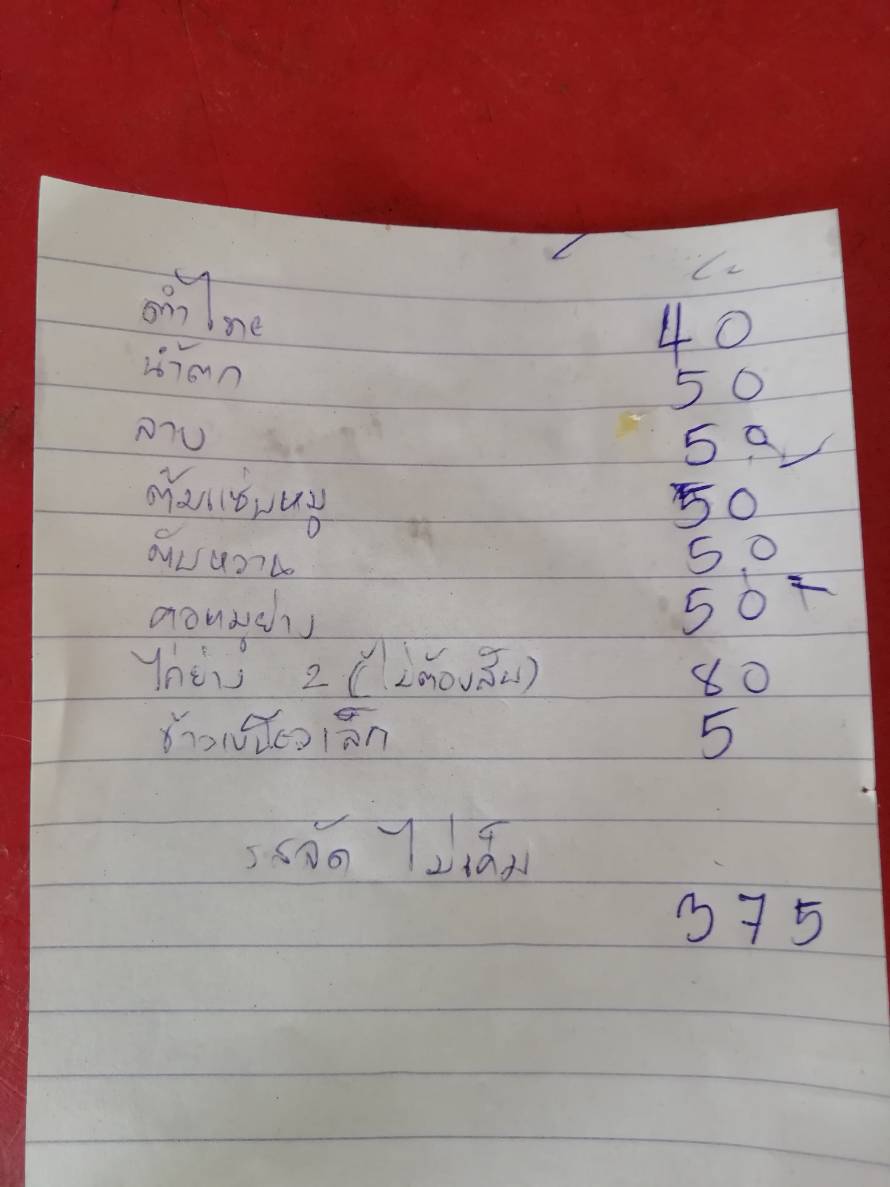 ตำไทย 40
น้ำตก 50
ลาบ 50
ต้มแซ่บหมู 50
ตับหวาน 50
คอหมูย่าง 50
ไก่ย่าง 2 (ไม่ต้องสับ) 80
ข้าวเหนียวเล็ก 5
รสจัด ไม่เค็ม
375